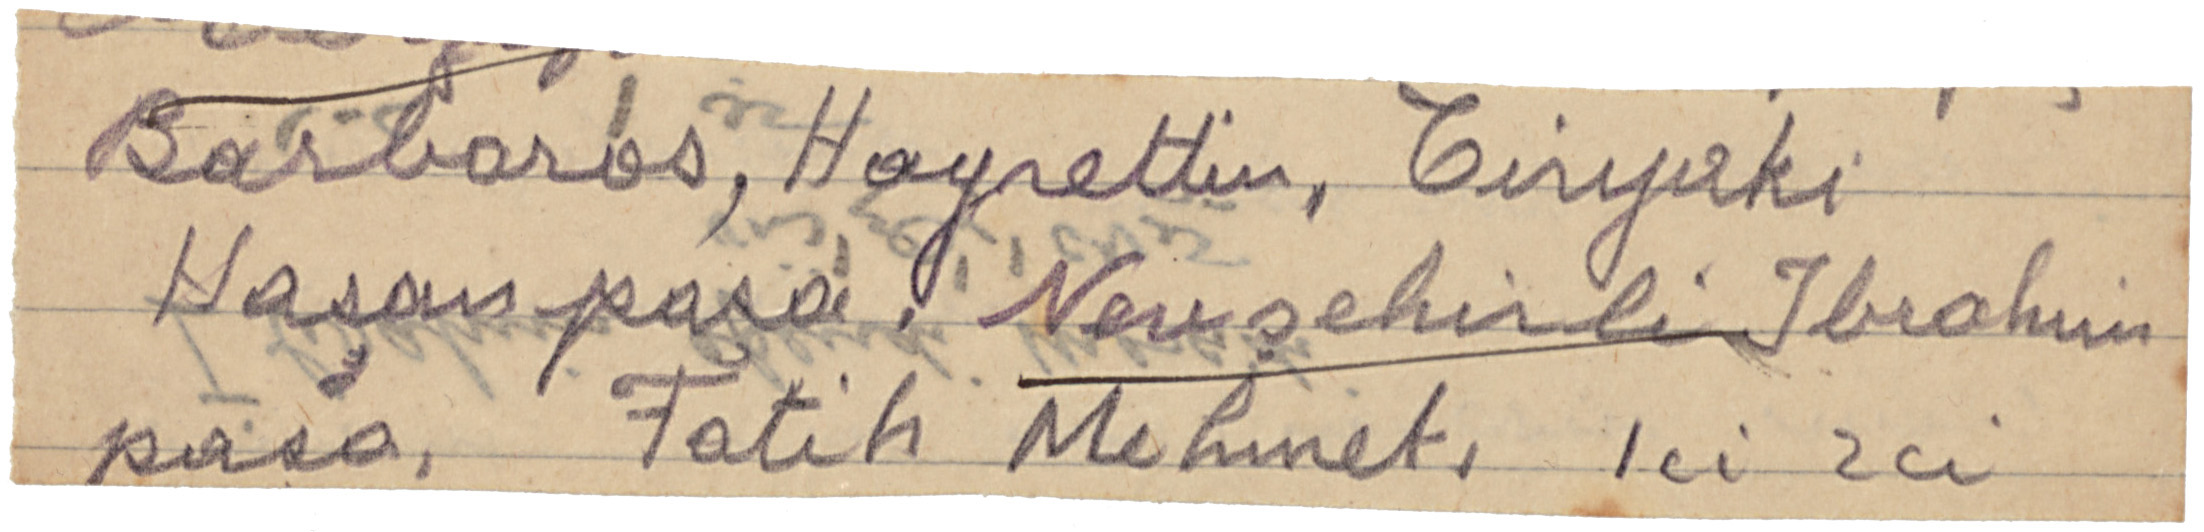 Barbaros, Hayrettin, Tiryaki
Hasan paşa, Nevşehirli Ibrahim
paşa, Fatih Mehmet, 1ci 2ci